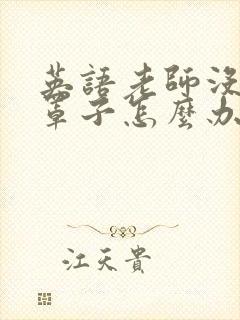 英語老師沒
罩子怎麼办
江天貴